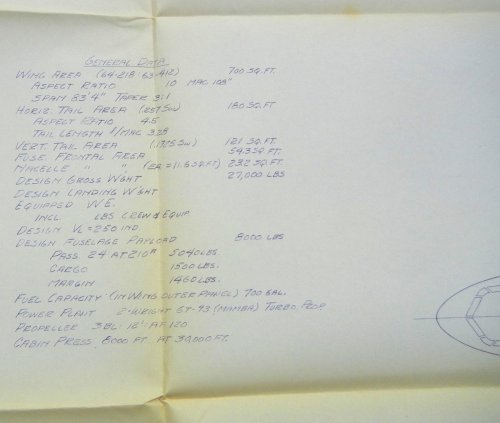 GENERAL DATA
WING AREA (64-218: 63-412) 700 SQ.FT.
ASPECT RATIO 10 MAC 108"
SPAN 83'4" TAPER 3:1
HORIZ. TAIL AREA (.257 SW) 180 SQ.FT
ASPECT RATIO 4.5
TAIL LENGTH /MAC 3.28
VERT. TAIL AREA (.1725 SW) 121 SQ.FT.
FUSE. FRONTAL AREA 54.3 SQ.FT.
NACELLE " " (EA. = 11.6 SQ.FT) 23.2 SQ.FT.
DESIGN GROSS W'GHT 27,000 LBS
DESIGN LANDING W'GHT
EQUIPPED W.E.
INCL LBS CREW & EQUIP
DESIGN VL = 250 IND
DESIGN FUSELAGE PAYLOAD 8000 LBS
PASS. 24 AT 210# 5040 LBS.
CARGO 1500 LBS.
MARGIN 1460 LBS.
FUEL CAPACITY (IN WING OUTER PANEL) 700 GAL.
POWER PLANT 2-WRIGHT GT-93 (MAMBA) TURBO PROP
PROPELLER 3 BL: 12' AF 120
CABIN PRESS. 8000 FT. AT 30,000 FT.